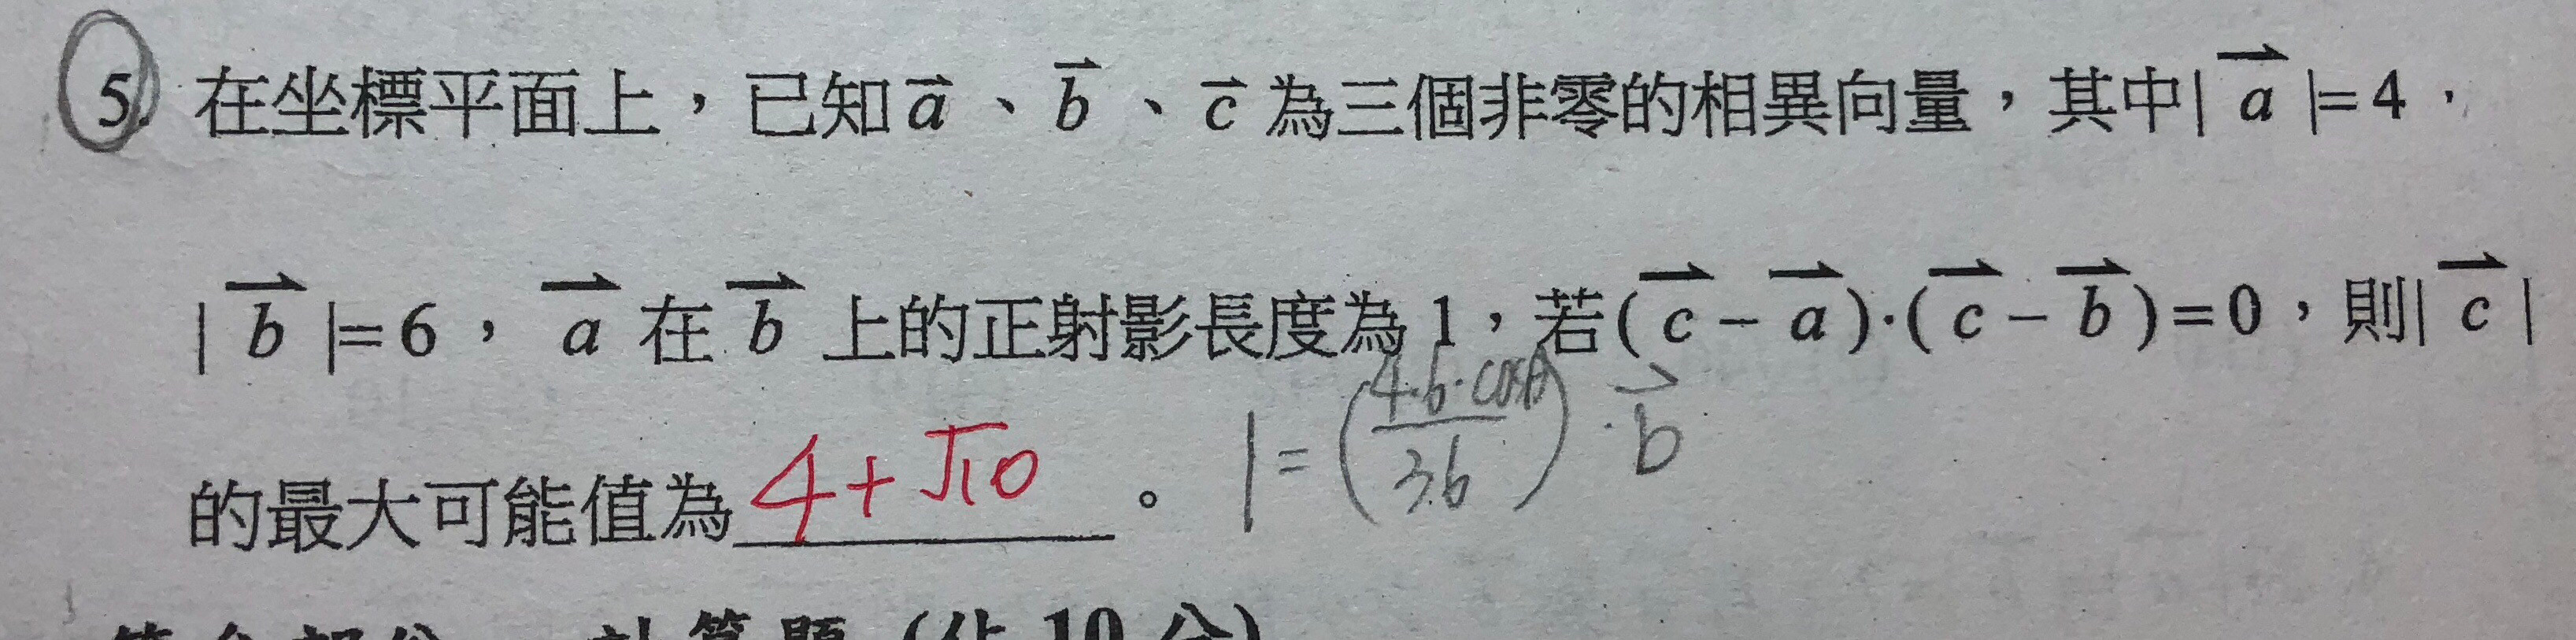 5. 在坐標平面上，已知 a⃗、b⃗、c⃗ 為三個非零的相異向量，其中| a⃗ |=4，
| b⃗ |=6，a⃗ 在 b⃗ 上的正射影長度為 1，若( c⃗ − a⃗ )·( c⃗ − b⃗ )=0，則| c⃗ |
的最大可能值為 4+√10 。 1=(4·6·cosθ/36)·b⃗
計算題（佔 10 分）